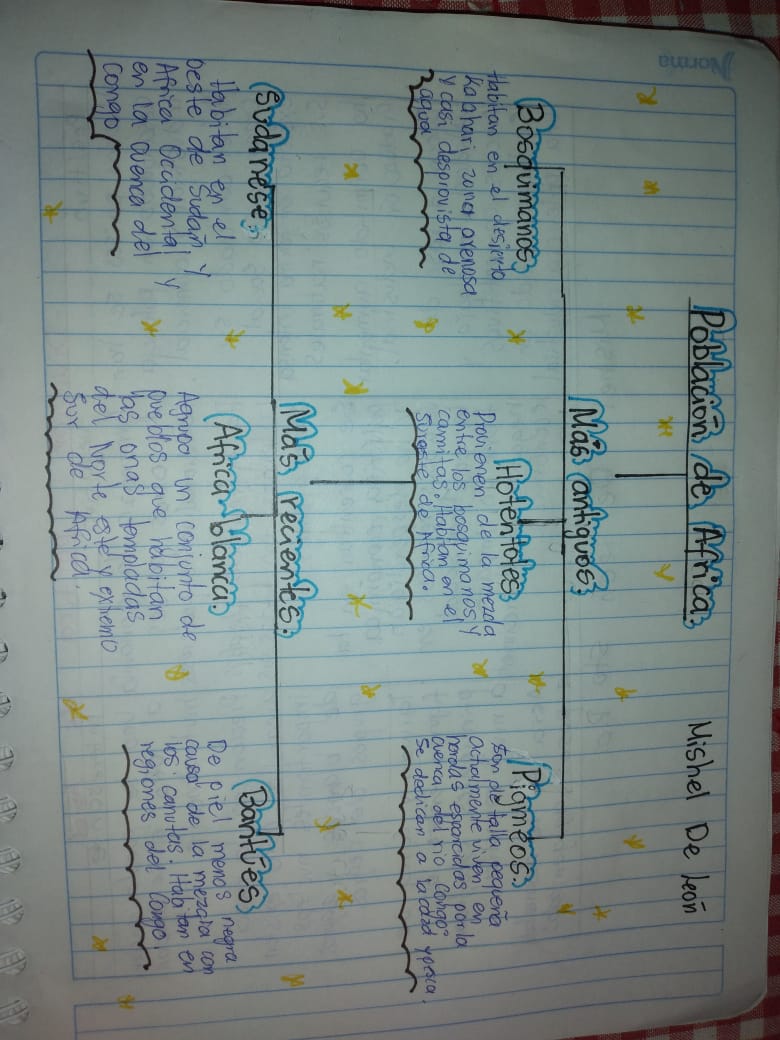 Norma
Población de Africa.
Mishel De león
Más antiguos.
Bosquimanos.
Habitan en el desierto
Kalahari zona arenosa
y casi desprovista de
agua
Hotentotes
Provienen de la mezcla
entre los bosquimanos y
camitas. Habitan en el
suroeste de Africa.
Pigmeos.
son de talla pequeña
actualmente viven en
hordas esparcidas por la
cuenca del rio congo
se dedican a la caza y pesca.
Más recientes.
Sudanese.
Habitan en el
oeste de Sudan y
Africa Occidental y
en la cuenca del
congo
Africa blanca.
Agrupa un conjunto de
pueblos que habitan
las onas templadas
del Norte este y extremo
Sur de Africa.
Bantúes
De piel menos negra
causa de la mezcla con
los camitas. Habitan en
regiones del congo.